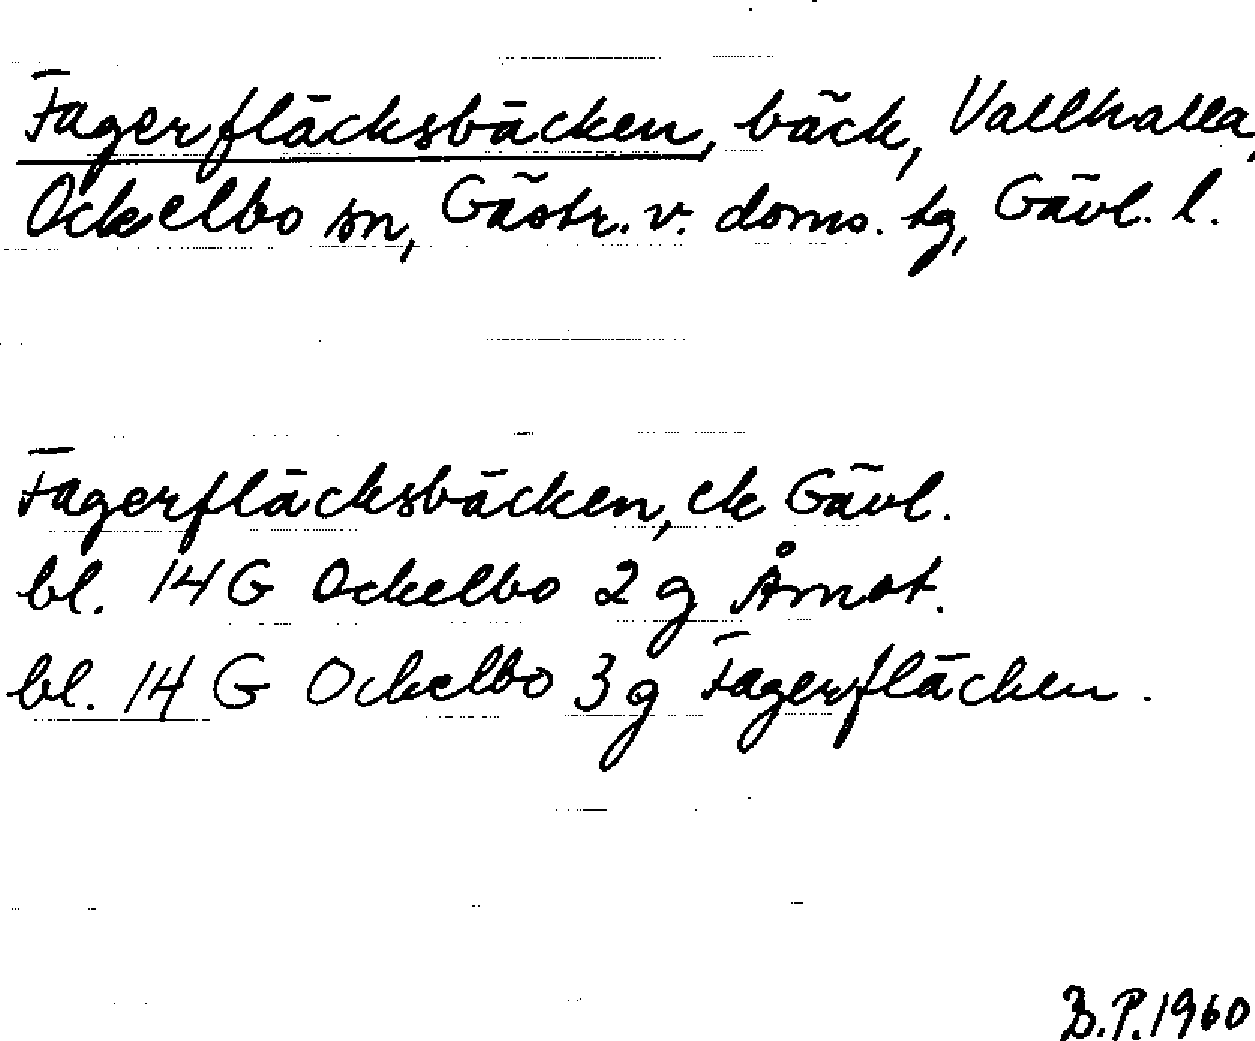 Fagerfläcksbäcken, bäck, Vallhalla,
Ockelbo sn, Gästr. v. doms. tg, Gävl. l.
Fagerfläcksbäcken, ek Gävl.
bl. 14 G Ockelbo 2 g Åmot.
bl. 14 G Ockelbo 3 g Fagerfläcken.
B.P. 1960